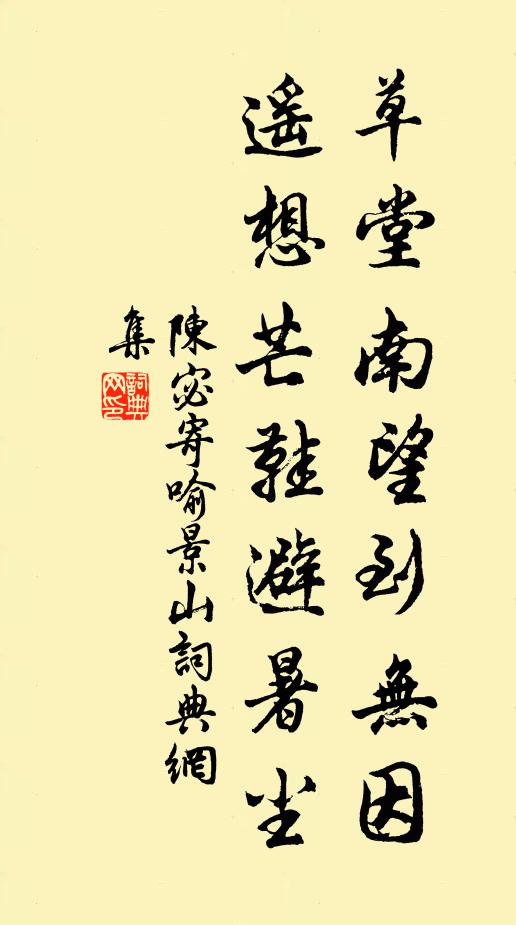 草堂南望到無因
遥想芒鞋避暑尘
陳宓寄喻景山詞典網
集
詞典
网印